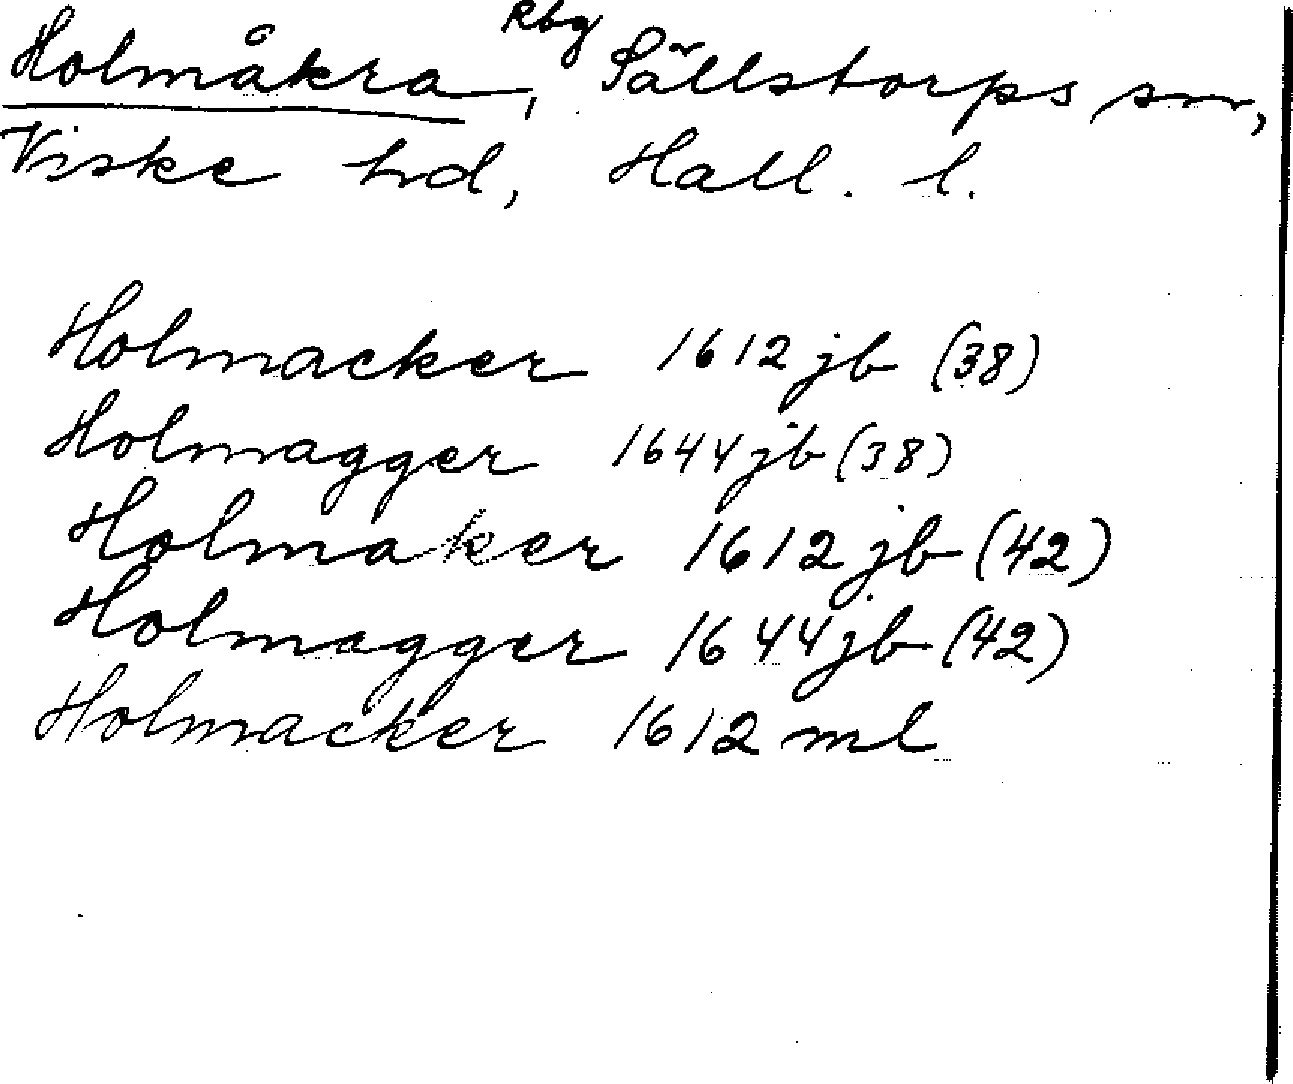 Holmåkra, Rbg Sällstorps sn,
Viske hd, Hall. l.
Holmacker 1612 jb (38)
Holmagger 1644 jb (38)
Holmaker 1612 jb (42)
Holmagger 1644 jb (42)
Holmacker 1612 ml